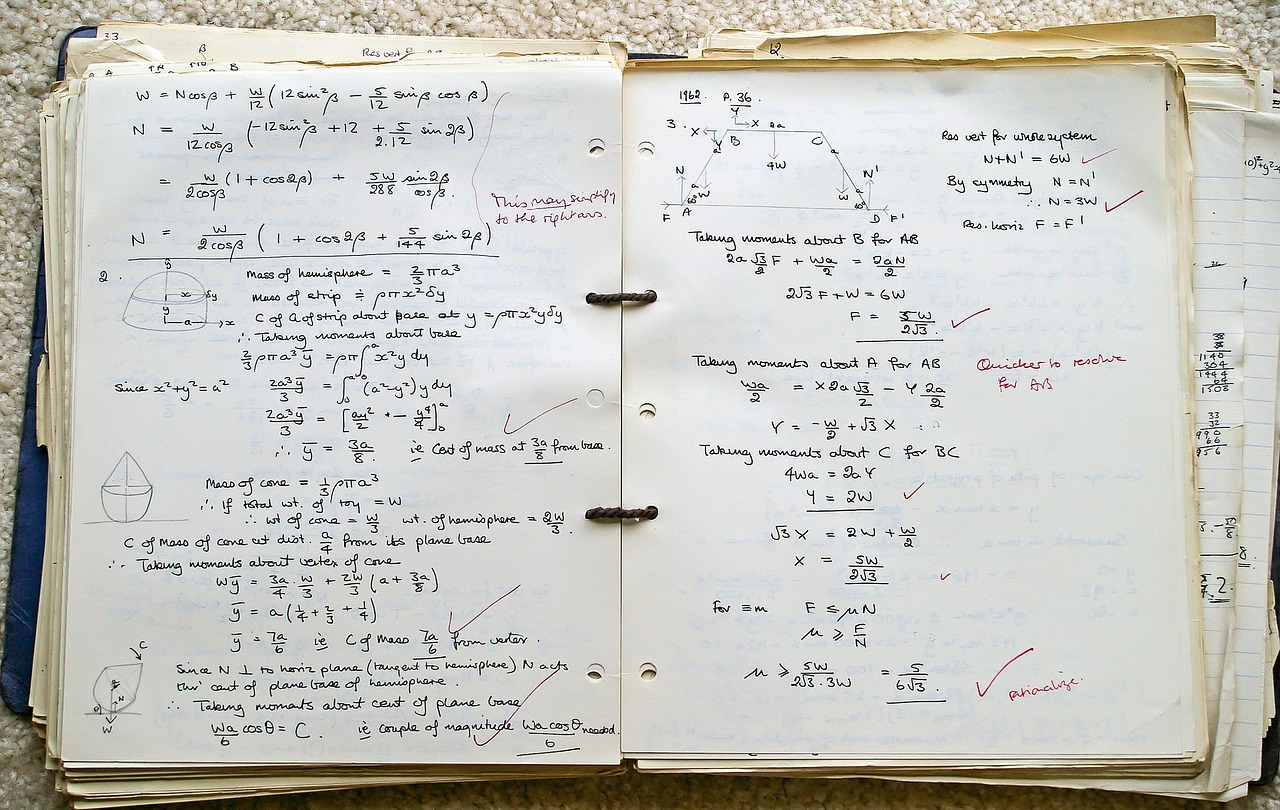 33.
β
Res vert
B
W = Ncosβ + W/12 (12sin²β − 5/12 sinβ cosβ)
N = W/12cosβ (−12sin²β + 12 + 5/2.12 sin2β)
= W/2cosβ (1 + cos2β) + 5W/288 sin2β/cosβ.
This may simplify
to the right ans.
N = W/2cosβ (1 + cos2β + 5/144 sin2β)
2.
y
x
δy
y
a
x
Mass of hemisphere = 2/3 πa³
Mass of strip ≑ ρπx²δy
C of G of strip about base at y = ρπx²yδy
∴ Taking moments about base
2/3 ρπa³ȳ = ρπ∫₀ᵃ x²y dy
Since x²+y²=a² 2a³ȳ/3 = ∫₀ᵃ (a²−y²)y dy
2a³ȳ/3 = [ay²/2 − y⁴/4]₀ᵃ
∴ ȳ = 3a/8 ie Cent of mass at 3a/8 from base.
Mass of cone = 1/3 ρπa³
∴ If total wt. of toy = W
∴ wt of cone = W/3 wt. of hemisphere = 2W/3.
C of Mass of cone at dist. a/4 from its plane base
∴ Taking moments about vertex of cone
Wȳ = 3a/4 . W/3 + 2W/3 (a + 3a/8)
ȳ = a(1/4 + 2/3 + 1/4)
ȳ = 7a/6 ie C of Mass 7a/6 from vertex.
C
N
θ
W
Since N ⊥ to horiz plane (tangent to hemisphere) N acts
thro' cent of plane base of hemisphere.
∴ Taking moments about cent of plane base
Wa/6 cosθ = C. ie couple of magnitude Wa cosθ/6 needed.
12.
1962. P.36.
3.
Y
X
2a
X
B
C
Y
a
a
4W
N
N'
a
a
W
W
60°
60°
F
A
D
F'
Res vert for whole system
N+N' = 6W
By symmetry N = N'
∴ N = 3W
Res. horiz F = F'
Taking moments about B for AB
2a √3/2 F + Wa/2 = 2aN/2
2√3 F + W = 6W
F = 5W/2√3.
Taking moments about A for AB
Quicker to resolve
for AB
Wa/2 = X 2a √3/2 − Y 2a/2
Y = −W/2 + √3 X
Taking moments about C for BC
4Wa = 2aY
Y = 2W
√3 X = 2W + W/2
X = 5W/2√3
For ≡m F ≤ μN
μ ≥ F/N
μ ≥ 5W/2√3.3W = 5/6√3.
rationalize.
38
38
1140
304
1444
64
1508
33
32
990
66
956